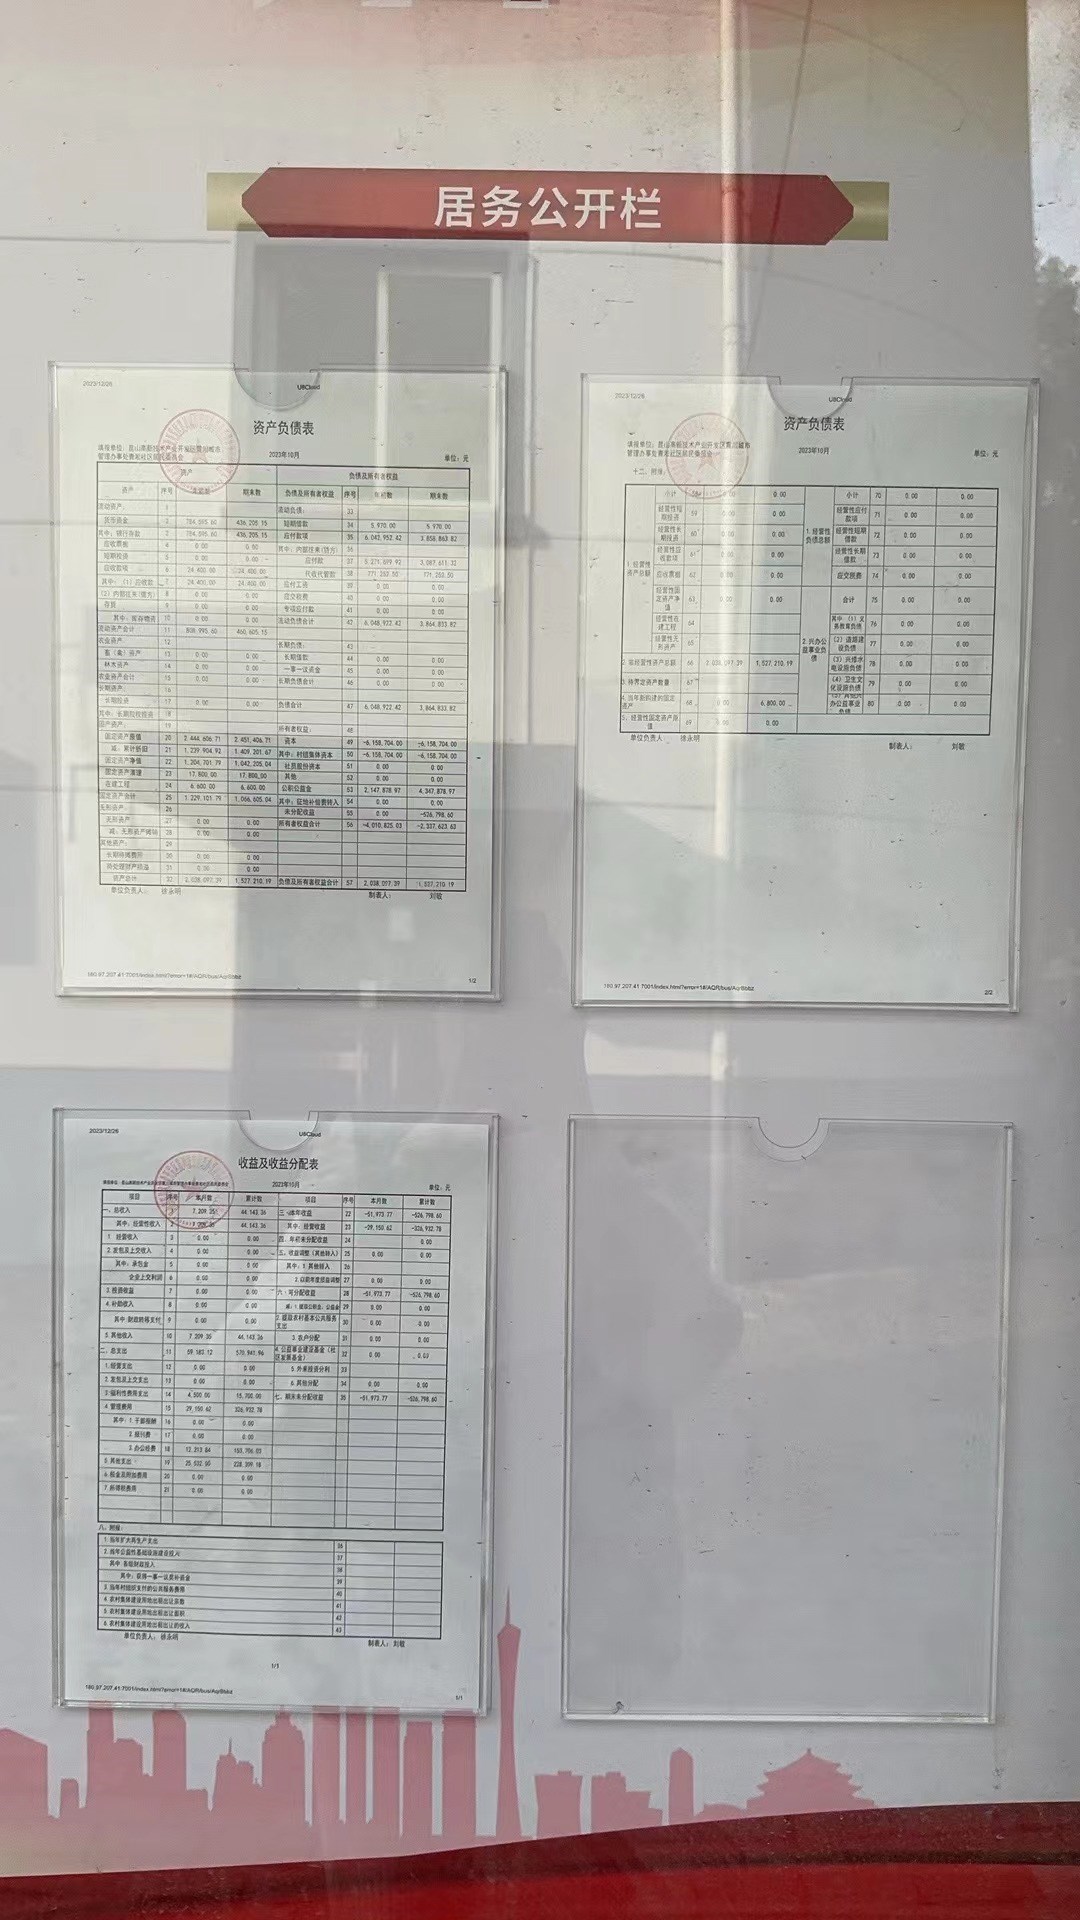 居务公开栏
2023/12/26
U8Cloud
资产负债表
2023年10月
单位：元
资产
负债及所有者权益
资产 序号 期末数 负债及所有者权益 序号 年初数 期末数
流动资产： 1 流动负债： 33
货币资金 2 784,595.60 436,205.15 短期借款 34 5,970.00 5,970.00
其中：银行存款 3 784,595.60 436,205.15 应付款项 35 6,042,952.42 3,858,863.82
应收票据 4 0.00 0.00 其中：内部往来(贷方) 36
短期投资 5 0.00 0.00 应付款 37 5,271,699.92 3,087,611.32
应收款项 6 24,400.00 24,400.00 代收代管款 38 771,252.50 771,252.50
其中：（1）应收款 7 24,400.00 24,400.00 应付工资 39 0.00 0.00
（2）内部往来(借方) 8 0.00 0.00 应交税费 40 0.00 0.00
存货 9 0.00 0.00 专项应付款 41 0.00 0.00
其中：库存物资 10 0.00 0.00 流动负债合计 42 6,048,922.42 3,864,833.82
流动资产合计 11 808,995.60 460,605.15
农业资产： 12 长期负债： 43
畜（禽）资产 13 0.00 0.00 长期借款 44 0.00 0.00
林木资产 14 0.00 0.00 一事一议资金 45 0.00 0.00
农业资产合计 15 0.00 0.00 长期负债合计 46 0.00 0.00
长期资产： 16
长期投资 17 0.00 0.00 负债合计 47 6,048,922.42 3,864,833.82
其中：长期股权投资 18
固定资产： 19 所有者权益： 48
固定资产原值 20 2,444,606.71 2,451,406.71 资本 49 -6,158,704.00 -6,158,704.00
减：累计折旧 21 1,239,904.92 1,409,201.67 其中：村组集体资本 50 -6,158,704.00 -6,158,704.00
固定资产净值 22 1,204,701.79 1,042,205.04 社员股份资本 51 0.00 0.00
固定资产清理 23 17,800.00 17,800.00 其他 52 0.00 0.00
在建工程 24 6,600.00 6,600.00 公积公益金 53 2,147,878.97 4,347,878.97
固定资产合计 25 1,229,101.79 1,066,605.04 其中：征地补偿费转入 54 0.00 0.00
无形资产： 26 未分配收益 55 0.00 -526,798.60
无形资产 27 0.00 0.00 所有者权益合计 56 -4,010,825.03 -2,337,623.63
减：无形资产摊销 28 0.00 0.00
其他资产： 29
长期待摊费用 30 0.00 0.00
待处理财产损溢 31 0.00 0.00
资产总计 32 2,038,097.39 1,527,210.19 负债及所有者权益合计 57 2,038,097.39 1,527,210.19
单位负责人： 徐永明 制表人： 刘敏
180.97.207.41:7001/index.html?error=1#/AQR/bus/AqrBbbz
1/2
2023/12/26
U8Cloud
资产负债表
2023年10月
单位：元
十二、附报：
小计 58 0.00 0.00 小计 70 0.00 0.00
经营性短期投资 59 0.00 0.00 经营性应付款项 71 0.00 0.00
经营性长期投资 60 0.00 0.00 1.经营性负债总额 经营性短期借款 72 0.00 0.00
1.经营性资产总额 经营性应收款项 61 0.00 0.00 经营性长期借款 73 0.00 0.00
应收票据 62 0.00 0.00 应交税费 74 0.00 0.00
经营性固定资产净值 63 0.00 0.00 合计 75 0.00 0.00
经营性在建工程 64 其中：（1）义务教育负债 76 0.00 0.00
经营性无形资产 65 2.兴办公益事业负债 （2）道路建设负债 77 0.00 0.00
2.非经营性资产总额 66 2,038,097.39 1,527,210.19 （3）兴修水电设施负债 78 0.00 0.00
3.待界定资产数量 67 （4）卫生文化设施负债 79 0.00 0.00
4.当年新购建的固定资产 68 0.00 6,800.00 80 0.00 0.00
5.经营性固定资产原值 69 0.00 0.00
单位负责人： 徐永明 制表人： 刘敏
180.97.207.41:7001/index.html?error=1#/AQR/bus/AqrBbbz
2/2
2023/12/26
U8Cloud
收益及收益分配表
2023年10月
单位：元
项目 序号 本月数 累计数 项目 序号 本月数 累计数
一、总收入 1 7,209.35 44,143.36 三、本年收益 22 -51,973.77 -526,798.60
其中：经营性收入 2 7,209.35 44,143.36 其中：经营收益 23 -29,150.62 -326,932.78
1.经营收入 3 0.00 0.00 四、年初未分配收益 24 0.00
2.发包及上交收入 4 0.00 0.00 五、收益调整（其他转入） 25 0.00 0.00
其中：承包金 5 0.00 0.00 其中：1.其他转入 26
企业上交利润 6 0.00 0.00 2.以前年度损益调整 27 0.00 0.00
3.投资收益 7 0.00 0.00 六、可分配收益 28 -51,973.77 -526,798.60
4.补助收入 8 0.00 0.00 减：1.提取公积金、公益金 29 0.00 0.00
其中:财政转移支付 9 0.00 0.00 2.提取农村基本公共服务支出 30 0.00 0.00
5.其他收入 10 7,209.35 44,143.36 3.农户分配 31 0.00 0.00
二、总支出 11 59,183.12 570,941.96 4.公益事业建设基金（社区发展基金） 32 0.00 0.00
1.经营支出 12 0.00 0.00 5.外来投资分利 33
2.发包及上交支出 13 0.00 0.00 6.其他分配 34 0.00 0.00
3.福利性费用支出 14 4,500.00 15,700.00 七、期末未分配收益 35 -51,973.77 -526,798.60
4.管理费用 15 29,150.62 326,932.78
其中：1.干部报酬 16 0.00 0.00
2.报刊费 17 0.00 0.00
3.办公经费 18 12,313.84 153,706.03
5.其他支出 19 25,532.50 228,309.18
6.税金及附加费用 20 0.00 0.00
7.所得税费用 21 0.00 0.00
八、附报：
1.当年扩大再生产支出 36
2.当年公益性基础设施建设投入 37
其中:各级财政投入 38
其中：获得一事一议奖补资金 39
3.当年村组织支付的公共服务费用 40
4.农村集体建设用地出租出让宗数 41
5.农村集体建设用地出租出让面积 42
6.农村集体建设用地出租出让的收入 43
单位负责人： 徐永明 制表人： 刘敏
1/1
180.97.207.41:7001/index.html?error=1#/AQR/bus/AqrBbbz
1/1